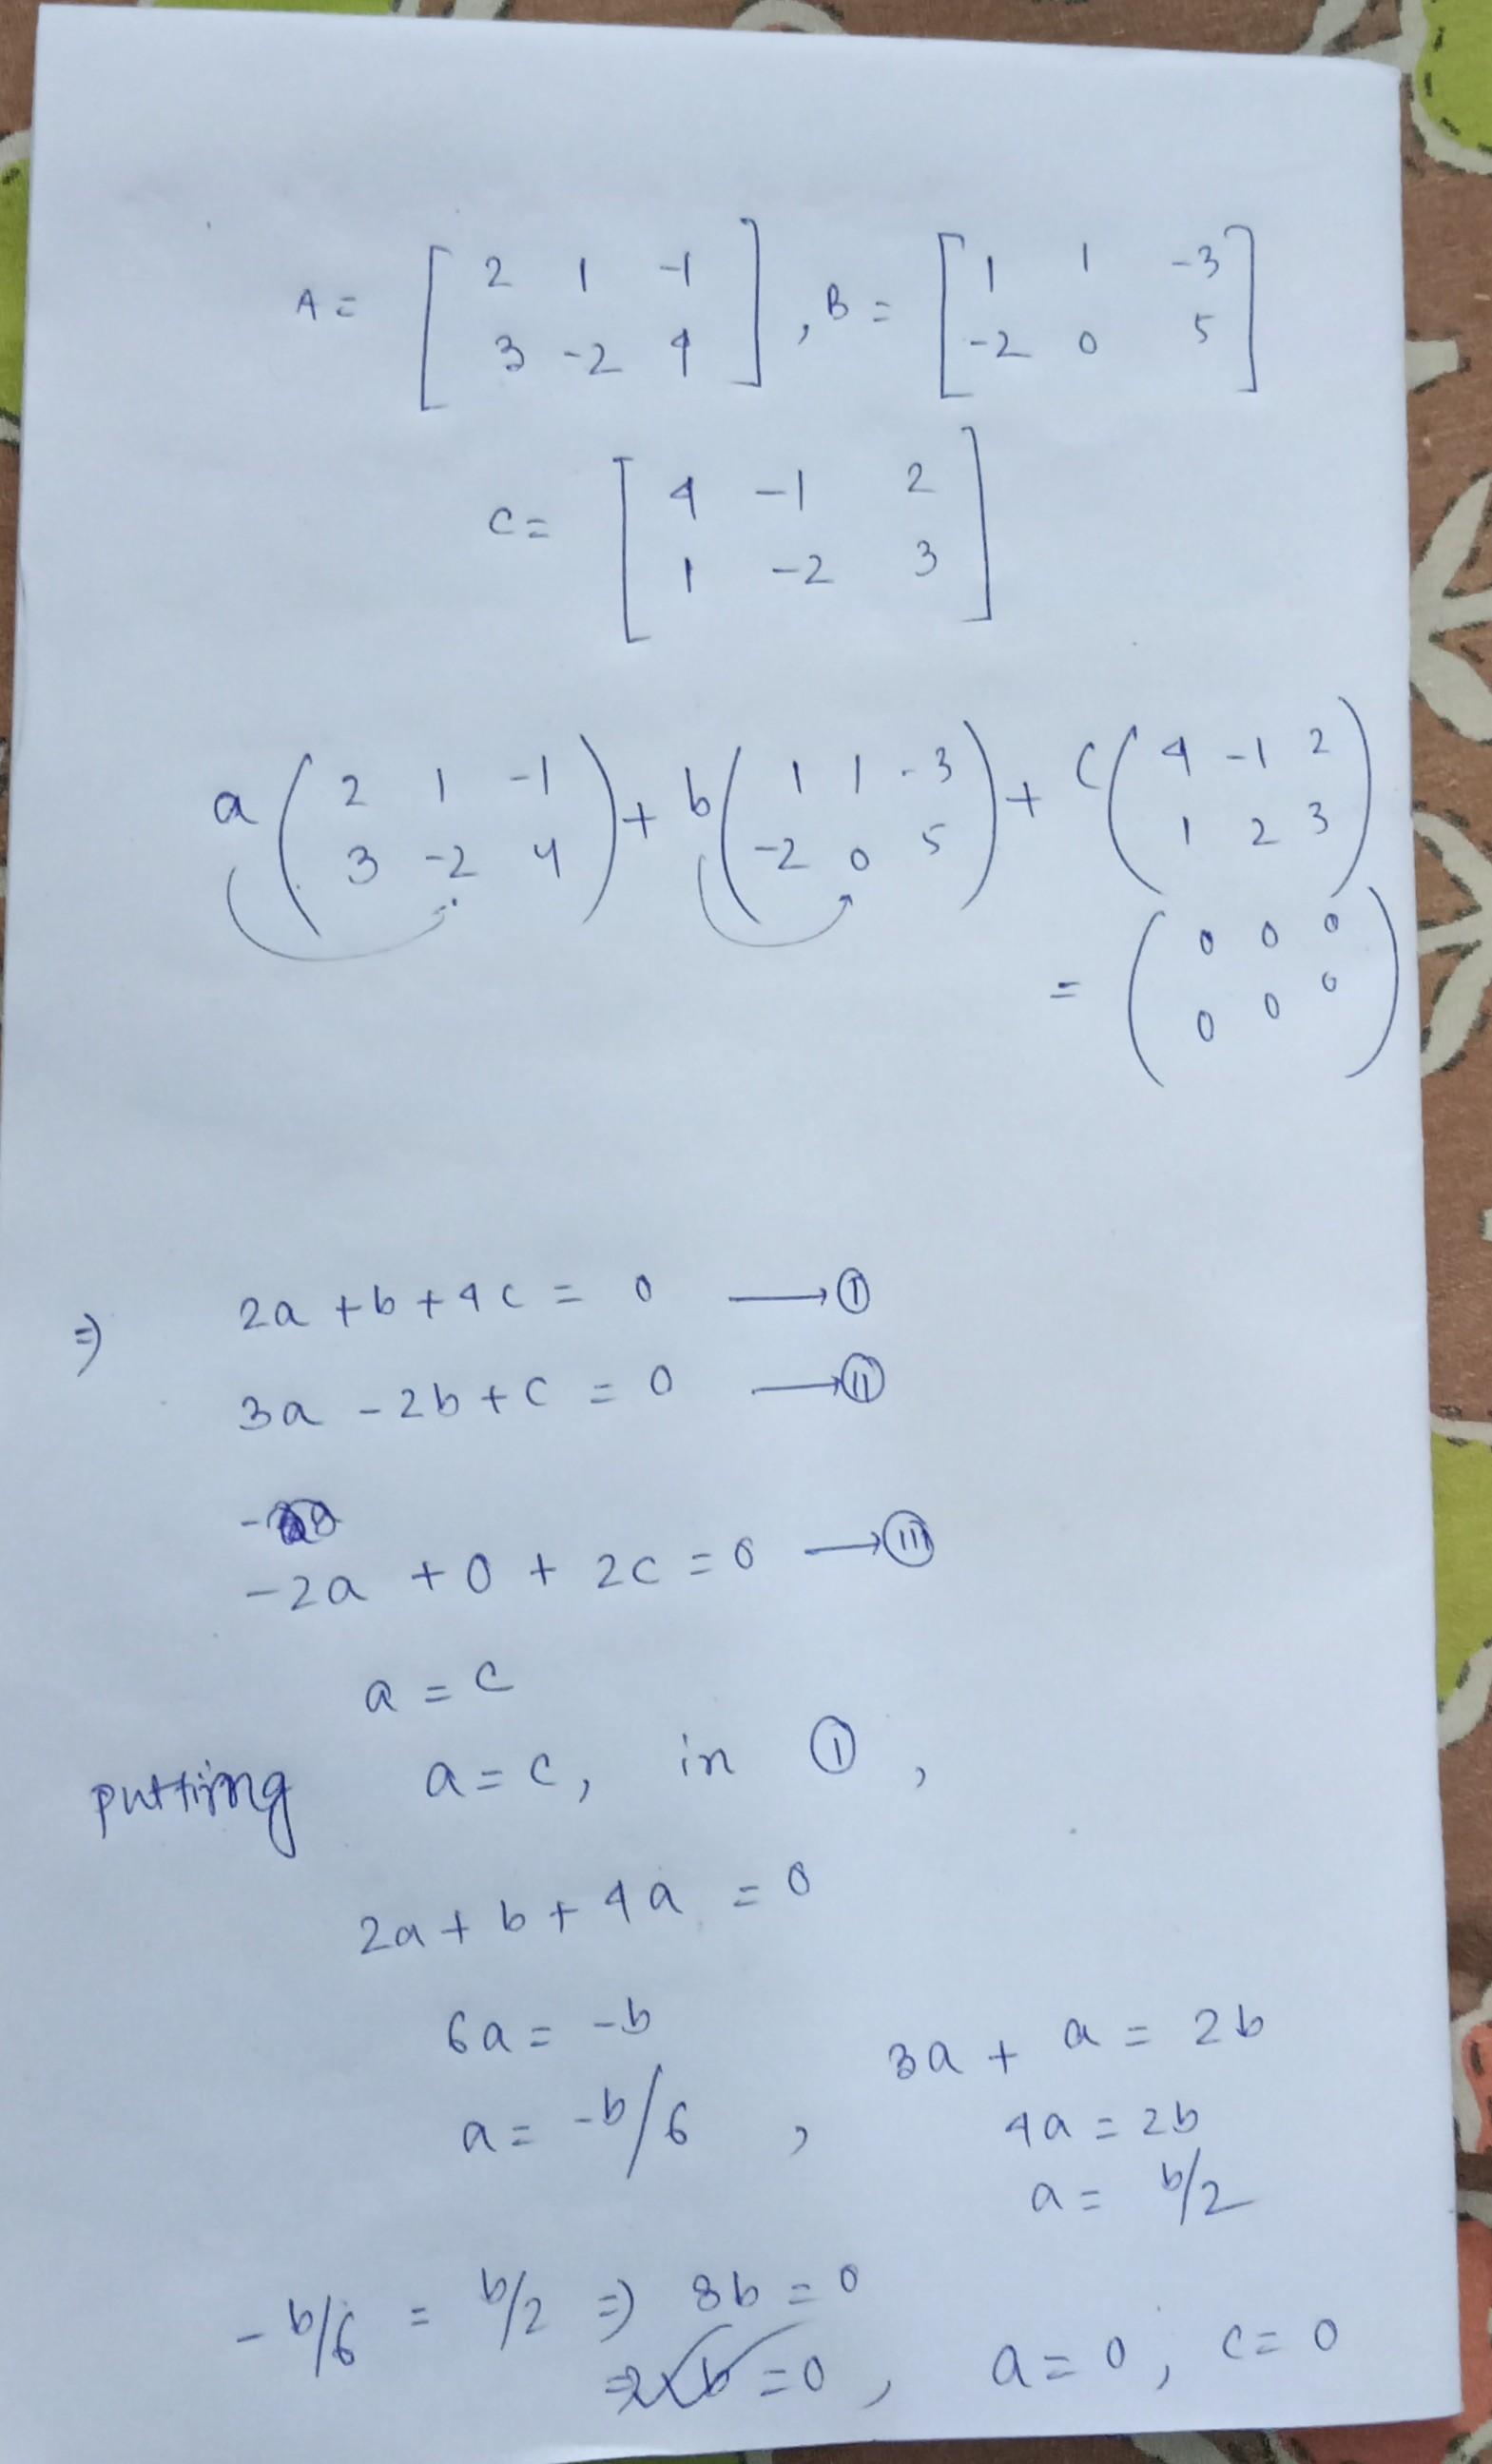 A = [ 2 1 -1 ] , B = [ 1 1 -3 ]
[ 3 -2 4 ] [ -2 0 5 ]
C = [ 4 -1 2 ]
[ 1 -2 3 ]
a ( 2 1 -1 ) + b ( 1 1 -3 ) + c ( 4 -1 2 )
( 3 -2 4 ) ( -2 0 5 ) ( 1 2 3 )
= ( 0 0 0 )
( 0 0 0 )
⇒ 2a + b + 4c = 0 → I
3a - 2b + c = 0 → II
-2a + 0 + 2c = 0 → III
a = c
putting a = c, in I,
2a + b + 4a = 0
6a = -b
3a + a = 2b
a = -b/6 , 4a = 2b
a = b/2
-b/6 = b/2 ⇒ 8b = 0
⇒ b = 0 , a = 0, c = 0